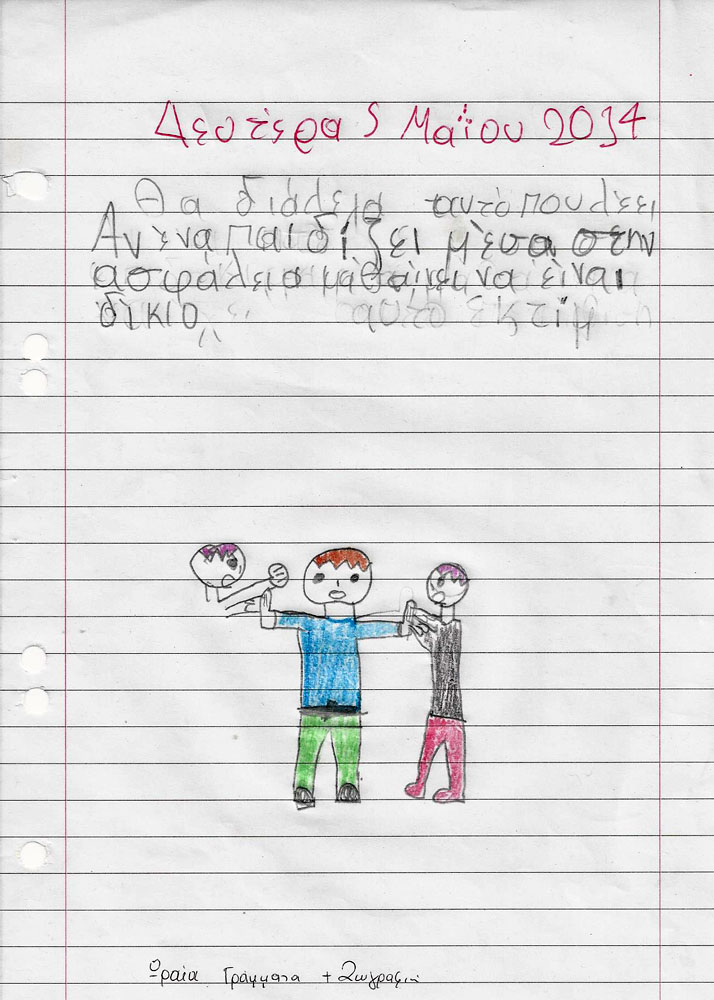 Δευτέρα 5 Μαΐου 2014
Θα διάλεγα αυτό που λέει
Αν ένα παιδί ζει μέσα στην
ασφάλεια μαθαίνει να είναι
δίκιο
αυτό εκτιμ
Ωραία Γράμματα + Ζωγραφιά